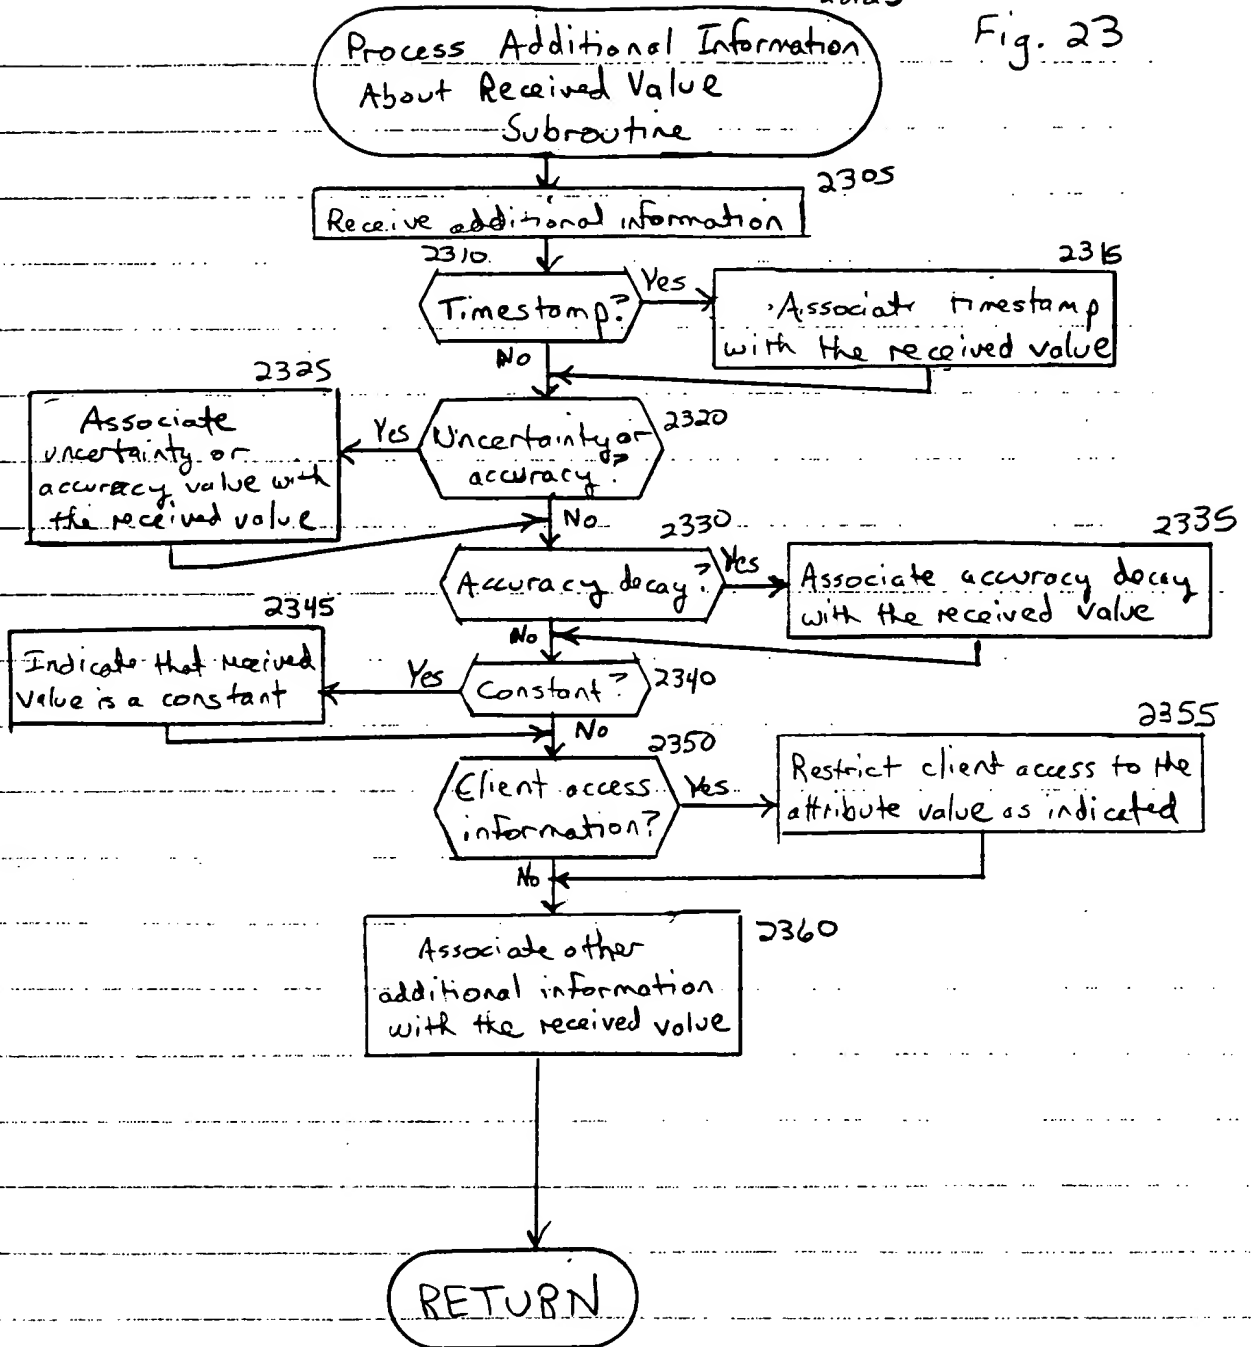 Fig. 23
Process Additional Information
About Received Value
Subroutine
2305
Receive additional information
2310
Timestamp?
Yes
No
2315
Associate timestamp
with the received value
2325
Associate
uncertainty or
accuracy value with
the received value
Yes
Uncertainty or
accuracy?
2320
No
2330
Accuracy decay?
Yes
No
2335
Associate accuracy decay
with the received value
2345
Indicate that received
value is a constant
Yes
Constant?
2340
No
2350
Client access
information?
Yes
No
2355
Restrict client access to the
attribute value as indicated
2360
Associate other
additional information
with the received value
RETURN